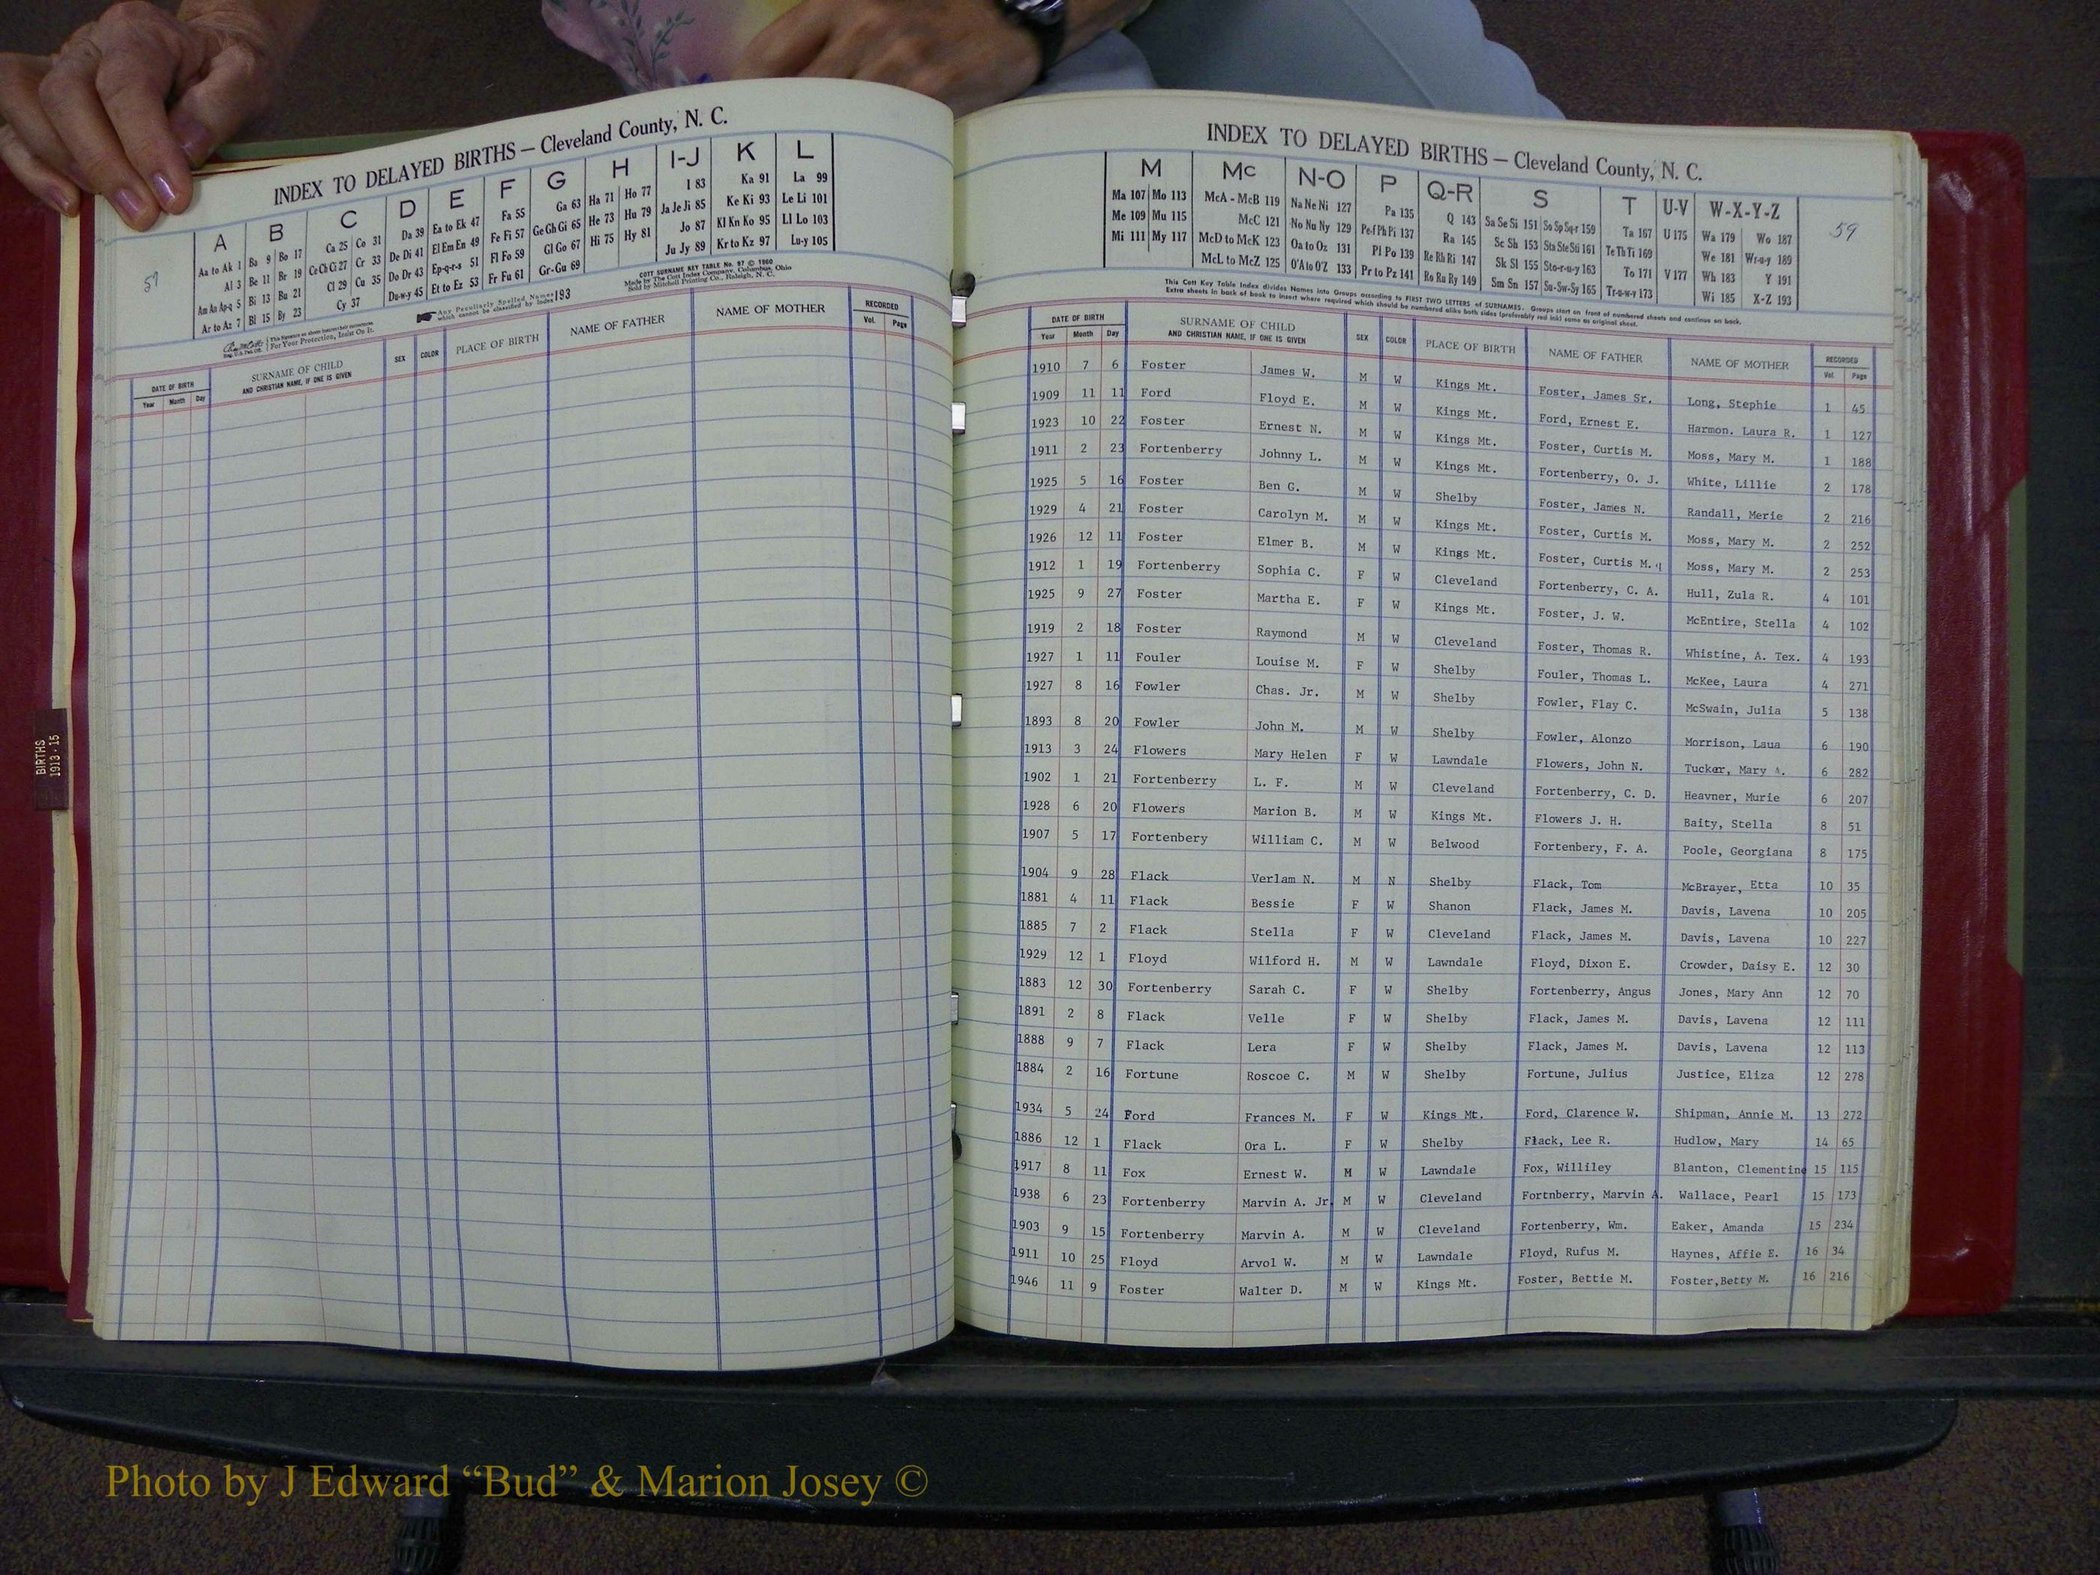 INDEX TO DELAYED BIRTHS — Cleveland County, N. C.
A B C D E F G H I-J K L
Aa to Ak 1 Ba 9 Bo 17 Ca 25 Co 31 Da 39 Ea to Ek 47 Fa 55 Ga 63 Ha 71 Ho 77 I 83 Ka 91 La 99
Al 3 Be 11 Br 19 Ce Ch Ci 27 Cr 33 De Di 41 El Em En 49 Fe Fi 57 Ge Gh Gi 65 He 73 Hu 79 Ja Je Ji 85 Ke Ki 93 Le Li 101
Am An Ap-q 5 Bi 13 Bu 21 Cl 29 Cu 35 Do Dr 43 Ep-q-r-s 51 Fl Fo 59 Gl Go 67 Hi 75 Hy 81 Jo 87 Kl Kn Ko 95 Ll Lo 103
Ar to Az 7 Bl 15 By 23 Cy 37 Du-w-y 45 Et to Ez 53 Fr Fu 61 Gr-Gu 69 Ju Jy 89 Kr to Kz 97 Lu-y 105
Any Peculiarly Spelled Names which cannot be classified by Index 193
COTT SURNAME KEY TABLE No. 97 © 1960
Made by The Cott Index Company, Columbus, Ohio
Sold by Mitchell Printing Co., Raleigh, N. C.
For Your Protection, Insist On It.
DATE OF BIRTH SURNAME OF CHILD SEX COLOR PLACE OF BIRTH NAME OF FATHER NAME OF MOTHER RECORDED
Year Month Day AND CHRISTIAN NAME, IF ONE IS GIVEN Vol. Page
BIRTHS
1913-15
INDEX TO DELAYED BIRTHS — Cleveland County, N. C.
59
M Mc N-O P Q-R S T U-V W-X-Y-Z
Ma 107 Mo 113 McA - McB 119 Na Ne Ni 127 Pa 135 Q 143 Sa Se Si 151 So Sp Sq-r 159 Ta 167 U 175 Wa 179 Wo 187
Me 109 Mu 115 McC 121 No Nu Ny 129 Pe-f Ph Pi 137 Ra 145 Sc Sh 153 Sta Ste Sti 161 Te Th Ti 169 We 181 Wr-u-y 189
Mi 111 My 117 McD to McK 123 Oa to Oz 131 Pl Po 139 Re Rh Ri 147 Sk Sl 155 Sto-r-u-y 163 To 171 V 177 Wh 183 Y 191
McL to McZ 125 O'A to O'Z 133 Pr to Pz 141 Ro Ru Ry 149 Sm Sn 157 Su-Sw-Sy 165 Tr-u-w-y 173 Wi 185 X-Z 193
This Cott Key Table Index divides Names into Groups according to FIRST TWO LETTERS of SURNAMES. Groups start on front of numbered sheets and continue on back.
Extra sheets in back of book to insert where required which should be numbered alike both sides (preferably red ink) same as original sheet.
DATE OF BIRTH SURNAME OF CHILD SEX COLOR PLACE OF BIRTH NAME OF FATHER NAME OF MOTHER RECORDED
Year Month Day AND CHRISTIAN NAME, IF ONE IS GIVEN Vol. Page
1910 7 6 Foster James W. M W Kings Mt. Foster, James Sr. Long, Stephie 1 45
1909 11 11 Ford Floyd E. M W Kings Mt. Ford, Ernest E. Harmon. Laura R. 1 127
1923 10 22 Foster Ernest N. M W Kings Mt. Foster, Curtis M. Moss, Mary M. 1 188
1911 2 23 Fortenberry Johnny L. M W Kings Mt. Fortenberry, O. J. White, Lillie 2 178
1925 5 16 Foster Ben G. M W Shelby Foster, James N. Randall, Merie 2 216
1929 4 21 Foster Carolyn M. M W Kings Mt. Foster, Curtis M. Moss, Mary M. 2 252
1926 12 11 Foster Elmer B. M W Kings Mt. Foster, Curtis M. Moss, Mary M. 2 253
1912 1 19 Fortenberry Sophia C. F W Cleveland Fortenberry, C. A. Hull, Zula R. 4 101
1925 9 27 Foster Martha E. F W Kings Mt. Foster, J. W. McEntire, Stella 4 102
1919 2 18 Foster Raymond M W Cleveland Foster, Thomas R. Whistine, A. Tex. 4 193
1927 1 11 Fouler Louise M. F W Shelby Fouler, Thomas L. McKee, Laura 4 271
1927 8 16 Fowler Chas. Jr. M W Shelby Fowler, Flay C. McSwain, Julia 5 138
1893 8 20 Fowler John M. M W Shelby Fowler, Alonzo Morrison, Laua 6 190
1913 3 24 Flowers Mary Helen F W Lawndale Flowers, John N. Tucker, Mary A. 6 282
1902 1 21 Fortenberry L. F. M W Cleveland Fortenberry, C. D. Heavner, Murie 6 207
1928 6 20 Flowers Marion B. M W Kings Mt. Flowers J. H. Baity, Stella 8 51
1907 5 17 Fortenbery William C. M W Belwood Fortenbery, F. A. Poole, Georgiana 8 175
1904 9 28 Flack Verlam N. M N Shelby Flack, Tom McBrayer, Etta 10 35
1881 4 11 Flack Bessie F W Shanon Flack, James M. Davis, Lavena 10 205
1885 7 2 Flack Stella F W Cleveland Flack, James M. Davis, Lavena 10 227
1929 12 1 Floyd Wilford H. M W Lawndale Floyd, Dixon E. Crowder, Daisy E. 12 30
1883 12 30 Fortenberry Sarah C. F W Shelby Fortenberry, Angus Jones, Mary Ann 12 70
1891 2 8 Flack Velle F W Shelby Flack, James M. Davis, Lavena 12 111
1888 9 7 Flack Lera F W Shelby Flack, James M. Davis, Lavena 12 113
1884 2 16 Fortune Roscoe C. M W Shelby Fortune, Julius Justice, Eliza 12 278
1934 5 24 Ford Frances M. F W Kings Mt. Ford, Clarence W. Shipman, Annie M. 13 272
1886 12 1 Flack Ora L. F W Shelby Flack, Lee R. Hudlow, Mary 14 65
1917 8 11 Fox Ernest W. M W Lawndale Fox, Williley Blanton, Clementine 15 115
1938 6 23 Fortenberry Marvin A. Jr. M W Cleveland Fortnberry, Marvin A. Wallace, Pearl 15 173
1903 9 15 Fortenberry Marvin A. M W Cleveland Fortenberry, Wm. Eaker, Amanda 15 234
1911 10 25 Floyd Arvol W. M W Lawndale Floyd, Rufus M. Haynes, Affie E. 16 34
1946 11 9 Foster Walter D. M W Kings Mt. Foster, Bettie M. Foster,Betty M. 16 216
Photo by J Edward “Bud” & Marion Josey ©